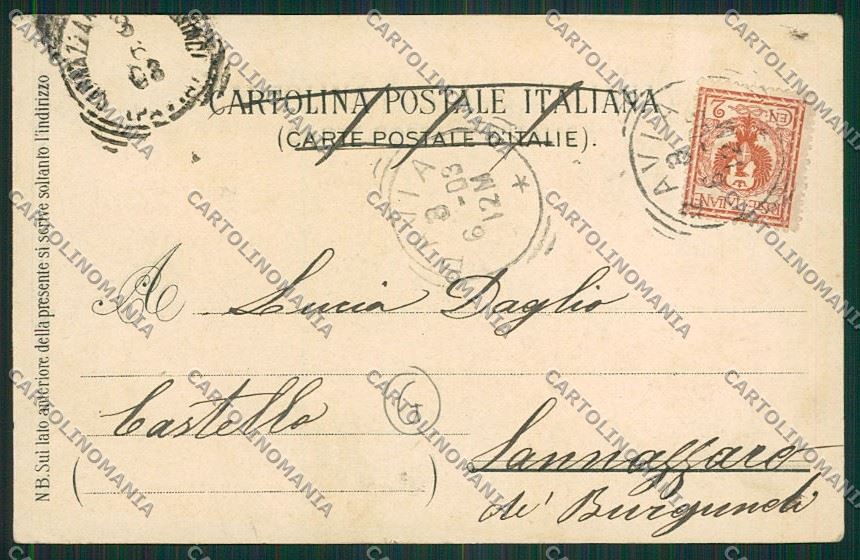 CARTOLINA POSTALE ITALIANA
(CARTE POSTALE D'ITALIE).
N B. Sul lato anteriore della presente si scrive soltanto l'indirizzo
PAVIA
8 - 03
6
12M
*
2
POSTE ITALIANE
A Lucia Daglio
Castello
Sannazzaro
de' Burgundi
CARTOLINOMANIA